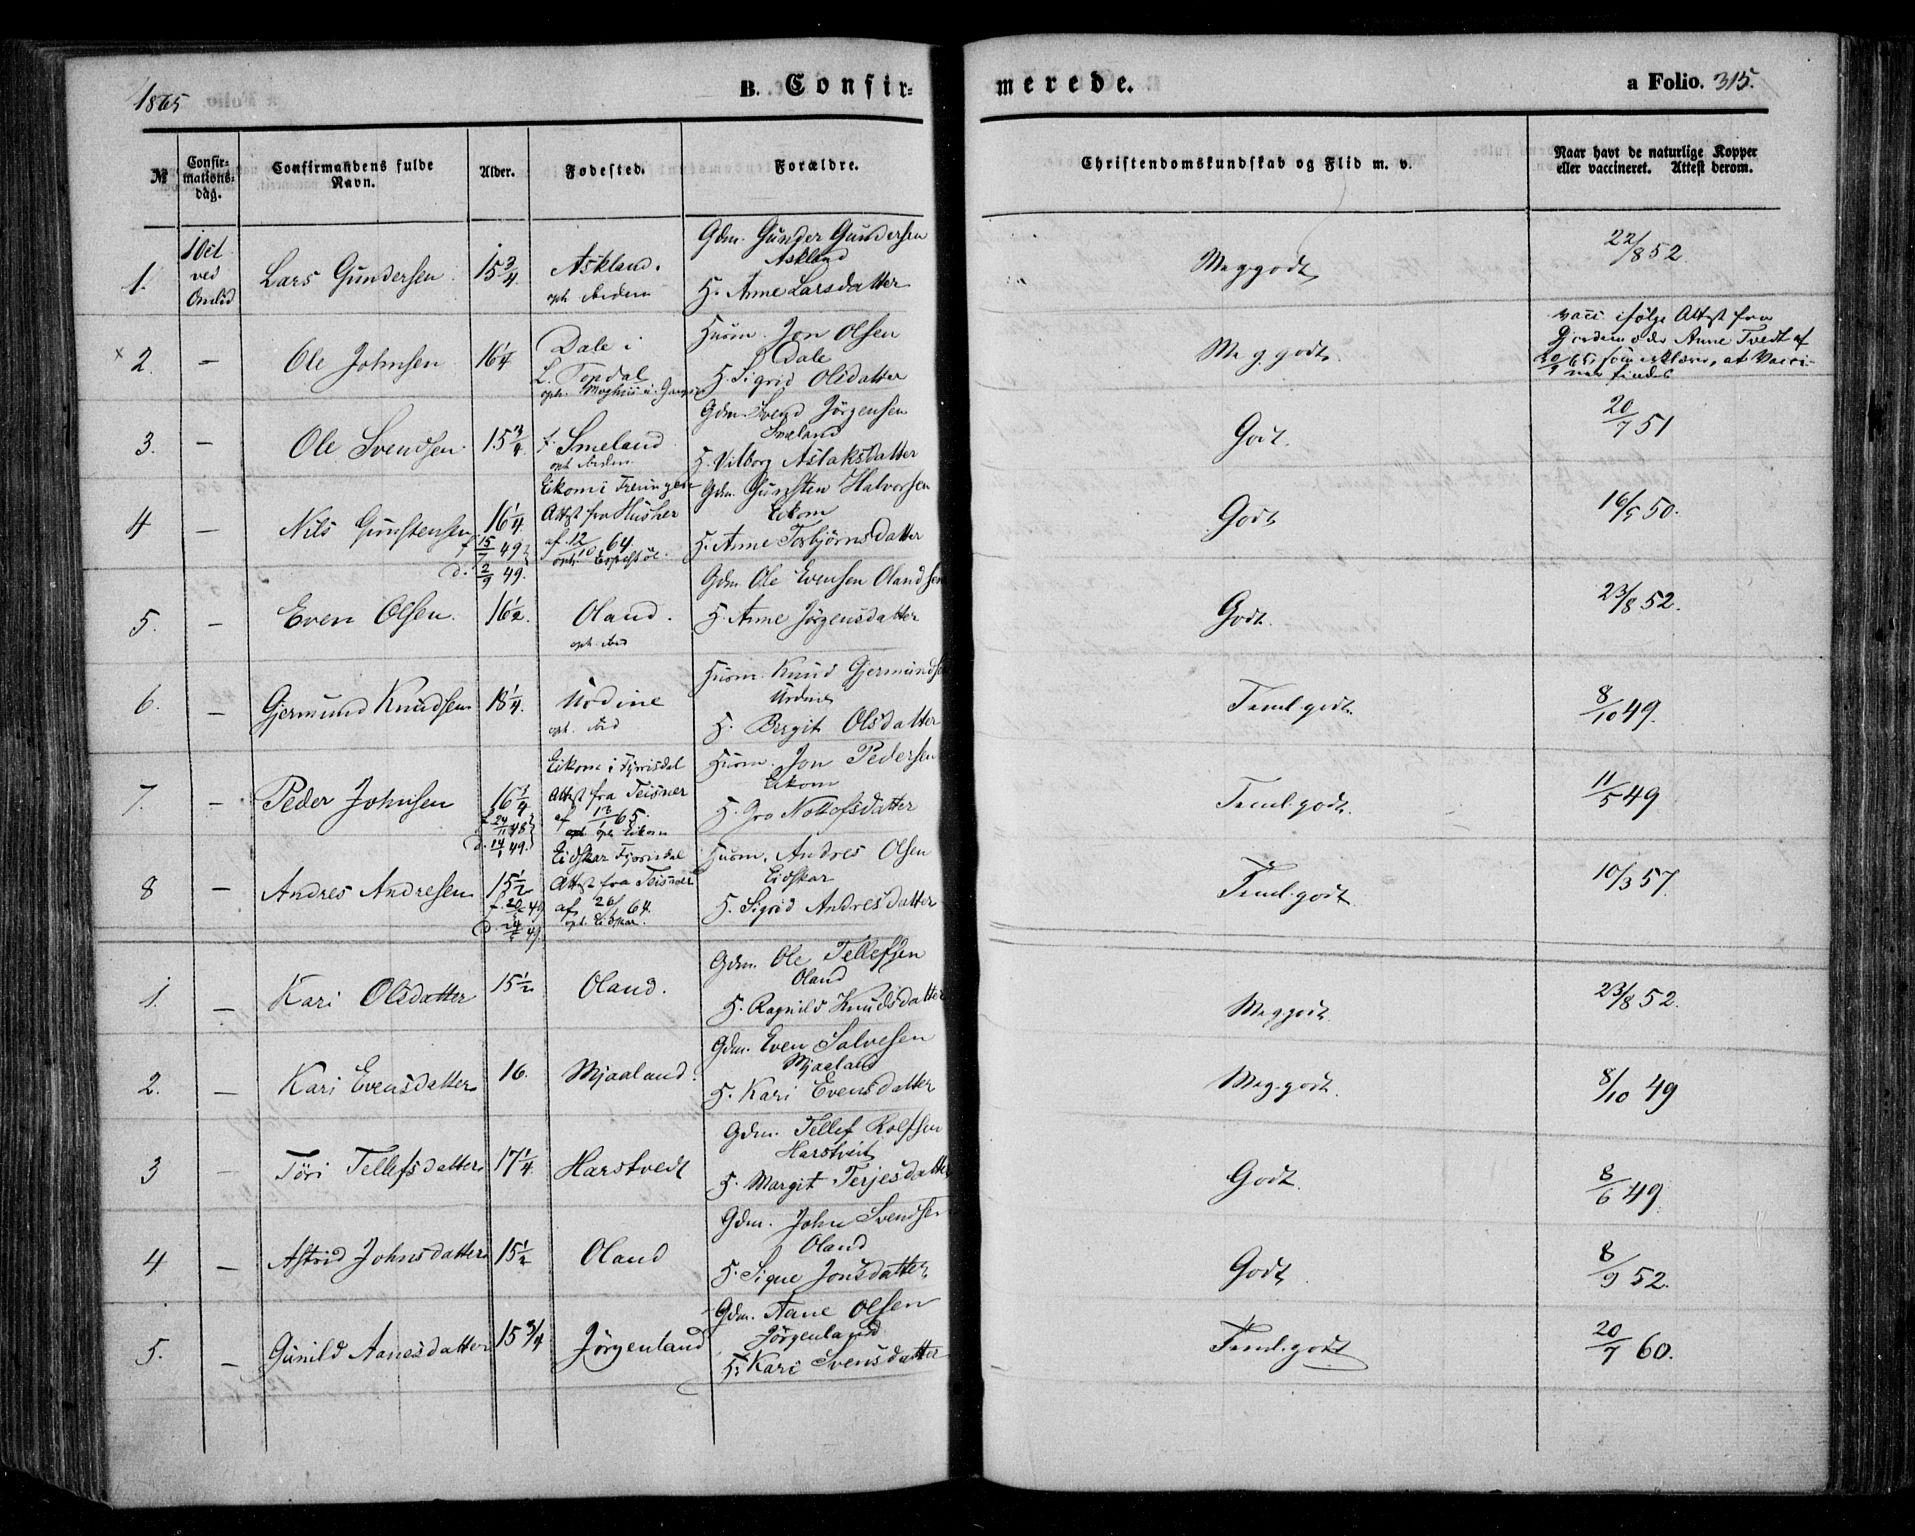 1865
B. Confir-
merede.
a Folio. 315.
№
Confir-
mations-
dag.
Confirmandens fulde
Navn.
Alder.
Fødested.
Forældre.
Christendomskundskab og Flid m. v.
Naar havt de naturlige Kopper
eller vaccineret. Attest derom.
1.
ved
Omlid
Lars Gundersen
15 3/4
Askland.
Gdm. Gunder Gundersen
Askland
H. Anne Larsdatter
Meg. godt
22/8 52
× 2.
—
Ole Johnsen
16 1/4
Dale i
Topdal
Huusm. Jon Olsen
Dale
H. Sigrid Olsdatter
Meg. godt.
vacc. ifølge Attest fra
Gjordemoder Anne Tvedt af
findes
3.
—
Ole Svendsen
15 3/4
f. Smeland
Gdm. Svend Jörgensen
Smeland
H. Vilborg Aslaksdatter
Godt.
20/7 51
4
—
Nils Gunstensen
16 1/4
f. 15/7 49
d. 2/9 49.
Eikom i Treungen
Attest fra Husher
af 12/10 64.
Gdm. Gunsten Halvorsen
Eikom
H. Anne Torbjörnsdatter
Godt
16/5 50.
5.
—
Even Olsen.
16 1/2.
Oland.
Gdm. Ole Evensen Oland
H. Anne Jörgensdatter
Godt.
23/8 52.
6.
—
Gjermund Knudsen
18 1/4.
Urdine
Huusm. Knud Gjermundsen
Urdine
H. Bergit Olsdatter
Teml. godt.
8/10 49.
7.
—
Peder Johnsen
16 1/4
f. 24/11 48
d. 14/1 49.
Eikom i Fyrrisdal
Attest fra Teisner
af 13/1 65.
oph. Eikom
Huusm. Jon Pedersen
Eikom
H. Gro Nottofsdatter
Teml. godt.
11/5 49
8
—
Andres Andresen
15 1/2
Eidskar Fyrrisdal
Attest fra Teisner
af 26/8 64.
oph. Eidskar.
Huusm. Andres Olsen
Eidskar
H. Sigrid Andresdatter
Teml. godt.
10/3 57.
1.
—
Kari Olsdatter
15 1/2
Oland.
Gdm. Ole Tellefsen
Oland
H. Ragnild Knudsdatter
Meg. godt.
23/8 52.
2.
—
Kari Evensdatter
16.
Mjaaland.
Gdm. Even Salvesen
Mjaaland
H. Kari Evensdatter
Meg. godt.
8/10 49
3
—
Töri Tellefsdatter
17 1/4
Harstvedt
Gdm. Tellef Rolfsen
Harstveit
H. Margit Terjesdatter
Godt.
8/6 49.
4
—
Astrid Johnsdatter
15 1/2
Oland
Gdm. John Svendsen
Oland
H. Signe Jonsdatter
Godt.
8/9 52.
5.
—
Gunild Aanesdatter
15 3/4
Jörgenland
Gdm. Aane Olsen
Jörgenland
H. Kari Svensdatter
Teml. godt
20/7 60.